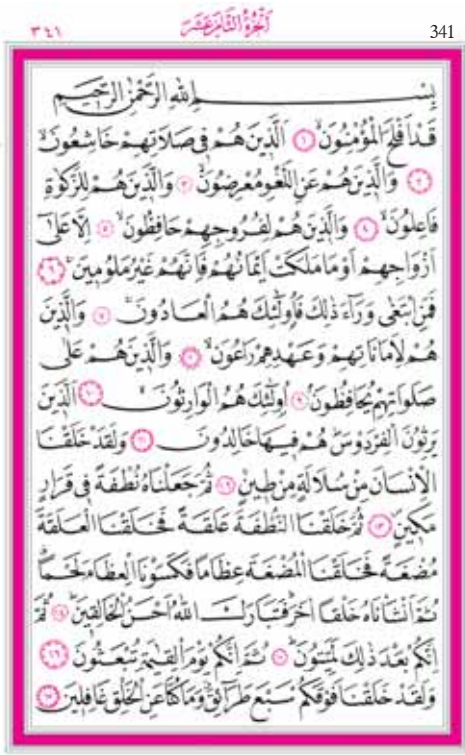 341 اَلْجُزْءُ الثَّامِنَ عَشَرَ ٣٤١
بِسْمِ اللّٰهِ الرَّحْمٰنِ الرَّحِيمِ
قَدْ اَفْلَحَ الْمُؤْمِنُونَۙ ﴿١﴾ اَلَّذِينَ هُمْ فِي صَلَاتِهِمْ خَاشِعُونَۙ
﴿٢﴾ وَالَّذِينَ هُمْ عَنِ اللَّغْوِ مُعْرِضُونَۙ ﴿٣﴾ وَالَّذِينَ هُمْ لِلزَّكٰوةِ
فَاعِلُونَۙ ﴿٤﴾ وَالَّذِينَ هُمْ لِفُرُوجِهِمْ حَافِظُونَۙ ﴿٥﴾ اِلَّا عَلٰٓى
اَزْوَاجِهِمْ اَوْ مَا مَلَكَتْ اَيْمَانُهُمْ فَاِنَّهُمْ غَيْرُ مَلُومِينَۚ ﴿٦﴾
فَمَنِ ابْتَغٰى وَرَٓاءَ ذٰلِكَ فَاُو۬لٰٓئِكَ هُمُ الْعَادُونَۚ ﴿٧﴾ وَالَّذِينَ
هُمْ لِاَمَانَاتِهِمْ وَعَهْدِهِمْ رَاعُونَۙ ﴿٨﴾ وَالَّذِينَ هُمْ عَلٰى
صَلَوَاتِهِمْ يُحَافِظُونَۢ ﴿٩﴾ اُو۬لٰٓئِكَ هُمُ الْوَارِثُونَۙ ﴿١٠﴾ اَلَّذِينَ
يَرِثُونَ الْفِرْدَوْسَۜ هُمْ فِيهَا خَالِدُونَ ﴿١١﴾ وَلَقَدْ خَلَقْنَا
الْاِنْسَانَ مِنْ سُلَالَةٍ مِنْ طِينٍۚ ﴿١٢﴾ ثُمَّ جَعَلْنَاهُ نُطْفَةً فِي قَرَارٍ
مَكِينٍۖ ﴿١٣﴾ ثُمَّ خَلَقْنَا النُّطْفَةَ عَلَقَةً فَخَلَقْنَا الْعَلَقَةَ
مُضْغَةً فَخَلَقْنَا الْمُضْغَةَ عِظَامًا فَكَسَوْنَا الْعِظَامَ لَحْمًاۗ
ثُمَّ اَنْشَأْنَاهُ خَلْقًا اٰخَرَۜ فَتَبَارَكَ اللّٰهُ اَحْسَنُ الْخَالِقِينَۜ ﴿١٤﴾ ثُمَّ
اِنَّكُمْ بَعْدَ ذٰلِكَ لَمَيِّتُونَۜ ﴿١٥﴾ ثُمَّ اِنَّكُمْ يَوْمَ الْقِيٰمَةِ تُبْعَثُونَ ﴿١٦﴾
وَلَقَدْ خَلَقْنَا فَوْقَكُمْ سَبْعَ طَرَٓائِقَۗ وَمَا كُنَّا عَنِ الْخَلْقِ غَافِلِينَ ﴿١٧﴾